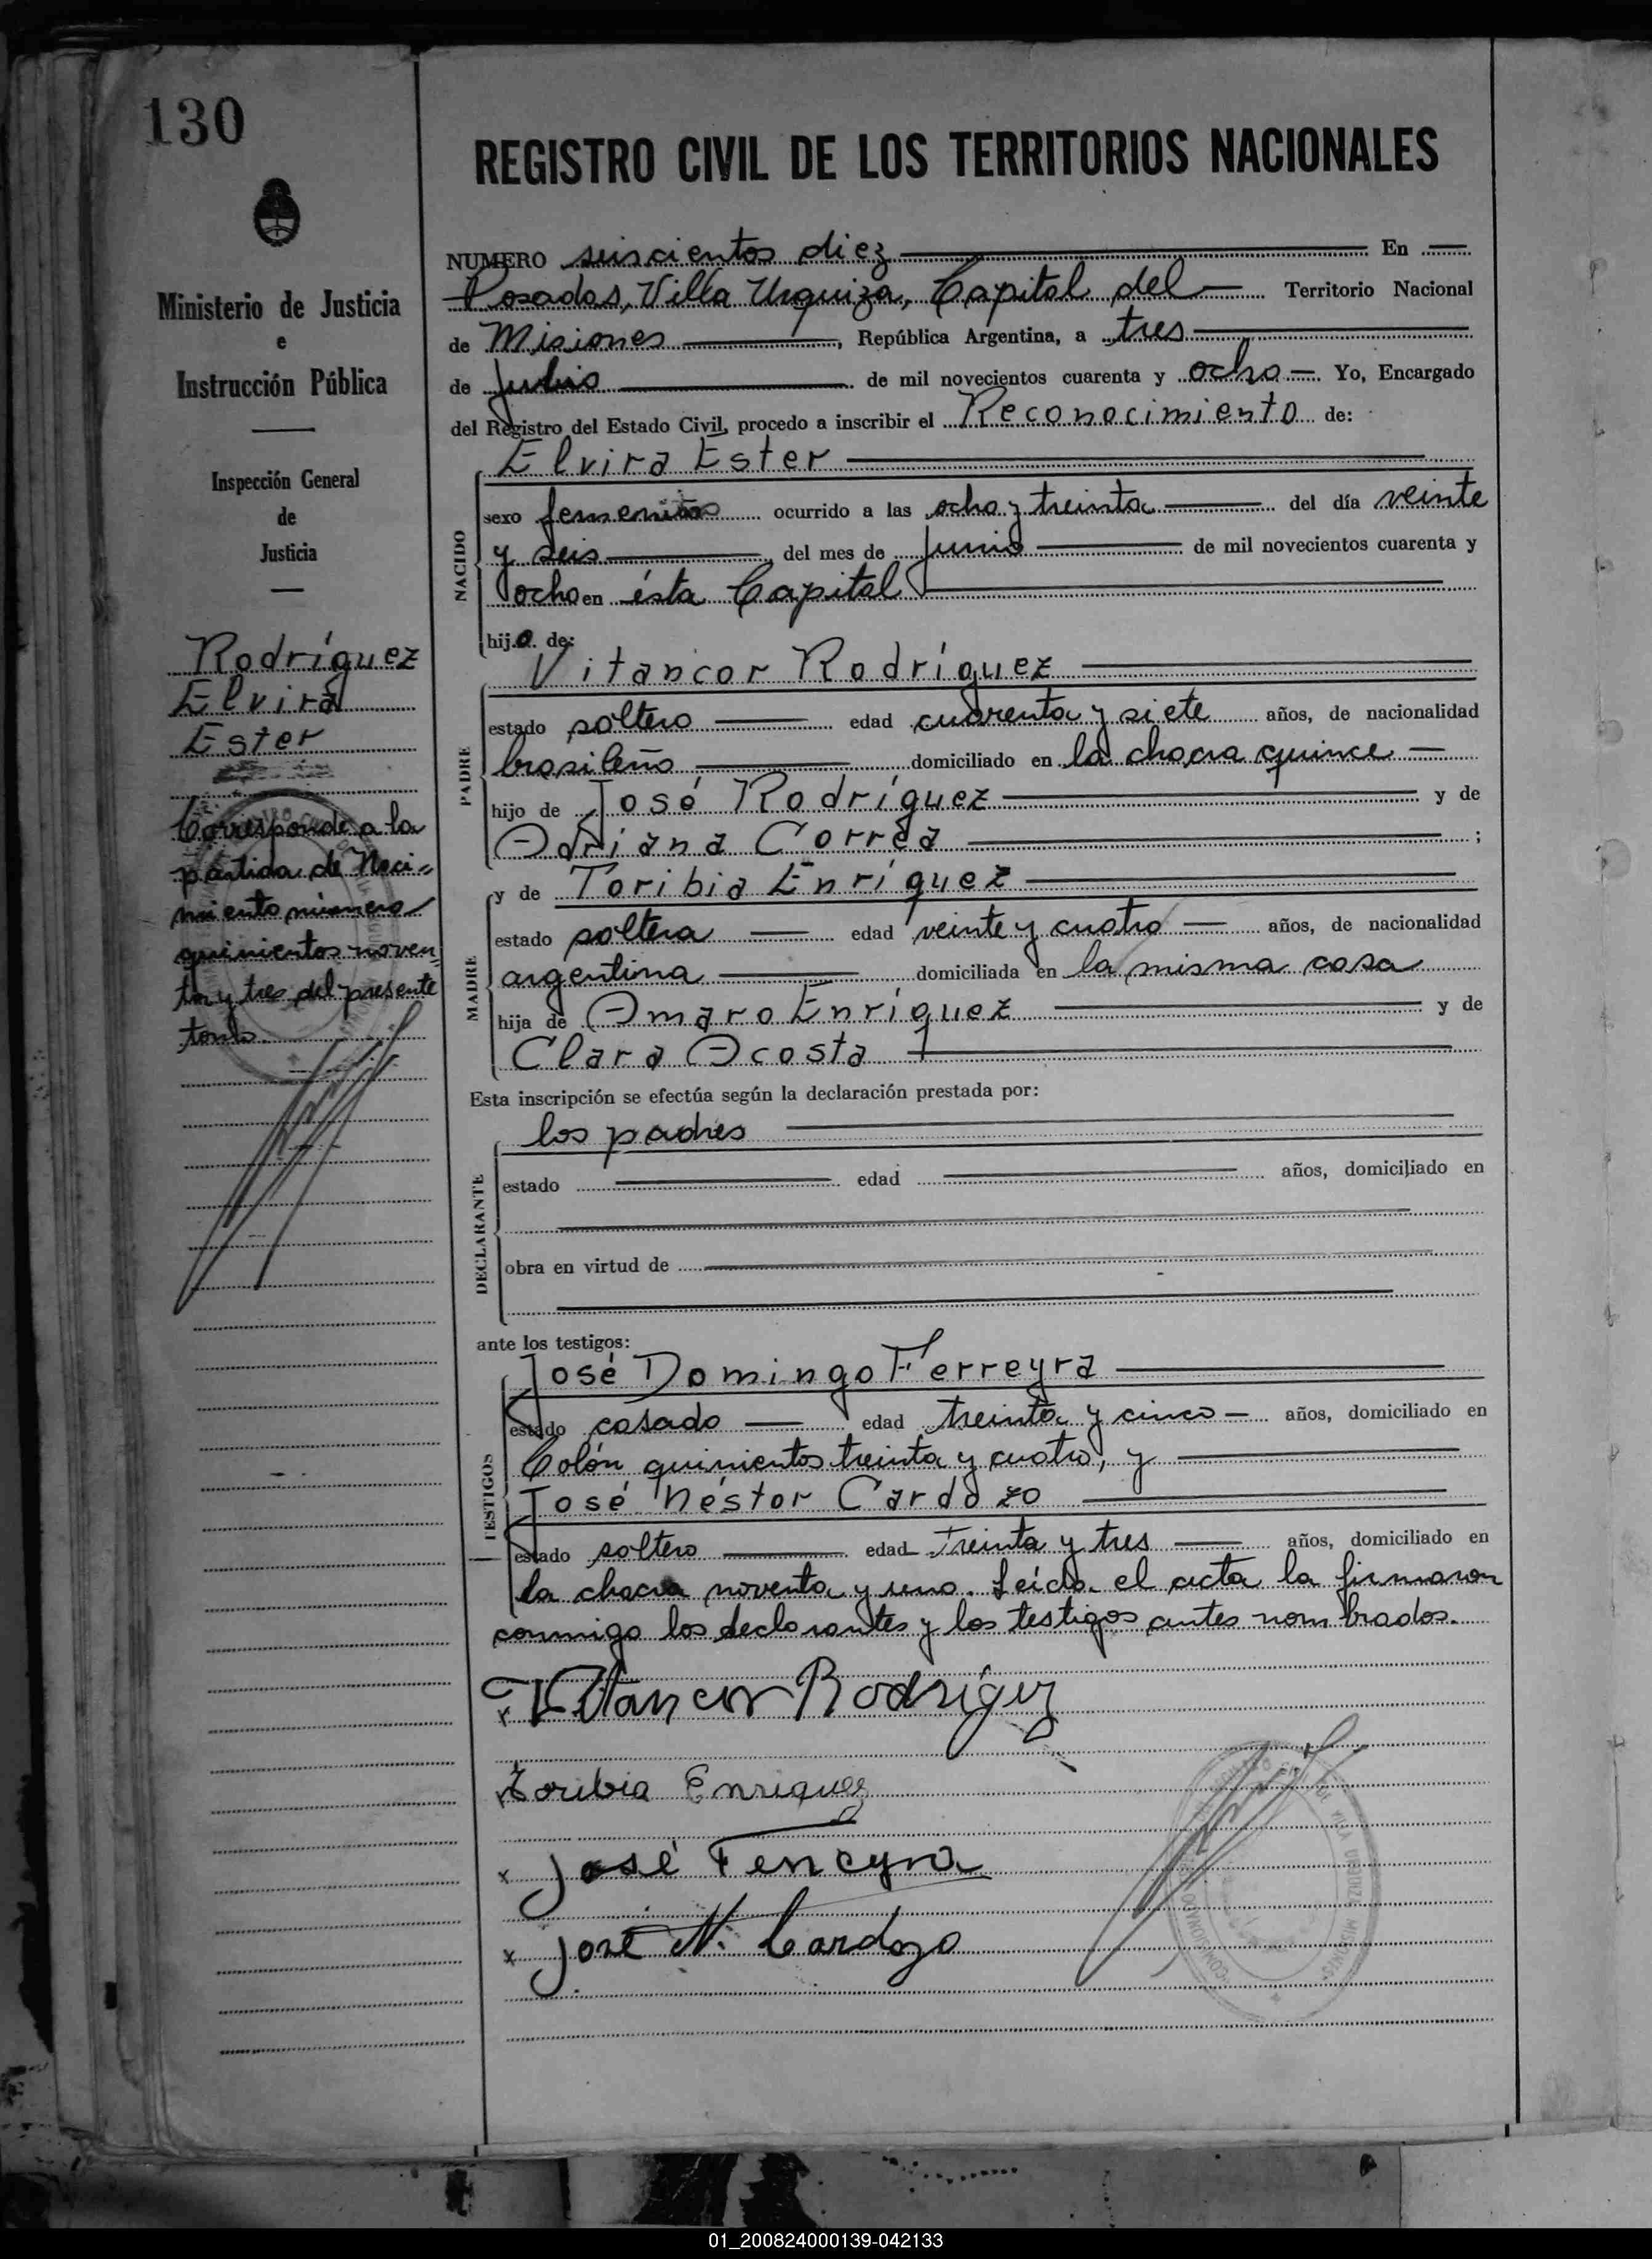 130
Ministerio de Justicia
e
Instrucción Pública
Inspección General
de
Justicia
Rodríguez
Elvira
Ester
Corresponde a la
partida de Naci-
miento número
quinientos noven-
ta y tres del presente
tomo.
REGISTRO CIVIL DE LOS TERRITORIOS NACIONALES
NUMERO seiscientos diez En
Posadas, Villa Urquiza, Capital del Territorio Nacional
de Misiones, República Argentina, a tres
de Julio de mil novecientos cuarenta y ocho Yo, Encargado
del Registro del Estado Civil, procedo a inscribir el Reconocimiento de:
Elvira Ester
NACIDO
sexo femenino ocurrido a las ocho y treinta del día veinte
y seis del mes de junio de mil novecientos cuarenta y
ocho en ésta Capital
hijo de:
Vitancor Rodríguez
PADRE
estado soltero edad cuarenta y siete años, de nacionalidad
brasileño domiciliado en la chacra quince
hijo de José Rodríguez y de
Adriana Correa ;
y de Toribia Enríquez
MADRE
estado soltera edad veinte y cuatro años, de nacionalidad
argentina domiciliada en la misma casa
hija de Amaro Enríquez y de
Clara Acosta
Esta inscripción se efectúa según la declaración prestada por:
los padres
DECLARANTE
estado edad años, domiciliado en
obra en virtud de
ante los testigos:
José Domingo Ferreyra
TESTIGOS
estado casado edad treinta y cinco años, domiciliado en
Colón quinientos treinta y cuatro, y
José Néstor Cardozo
estado soltero edad Treinta y tres años, domiciliado en
la chacra noventa y uno. Leida el acta la firmaron
conmigo los declarantes y los testigos antes nombrados.
x Vitancor Rodriguez
x Toribia Enriquez
x José Ferreyra
x José N. Cardozo
01_200824000139-042133